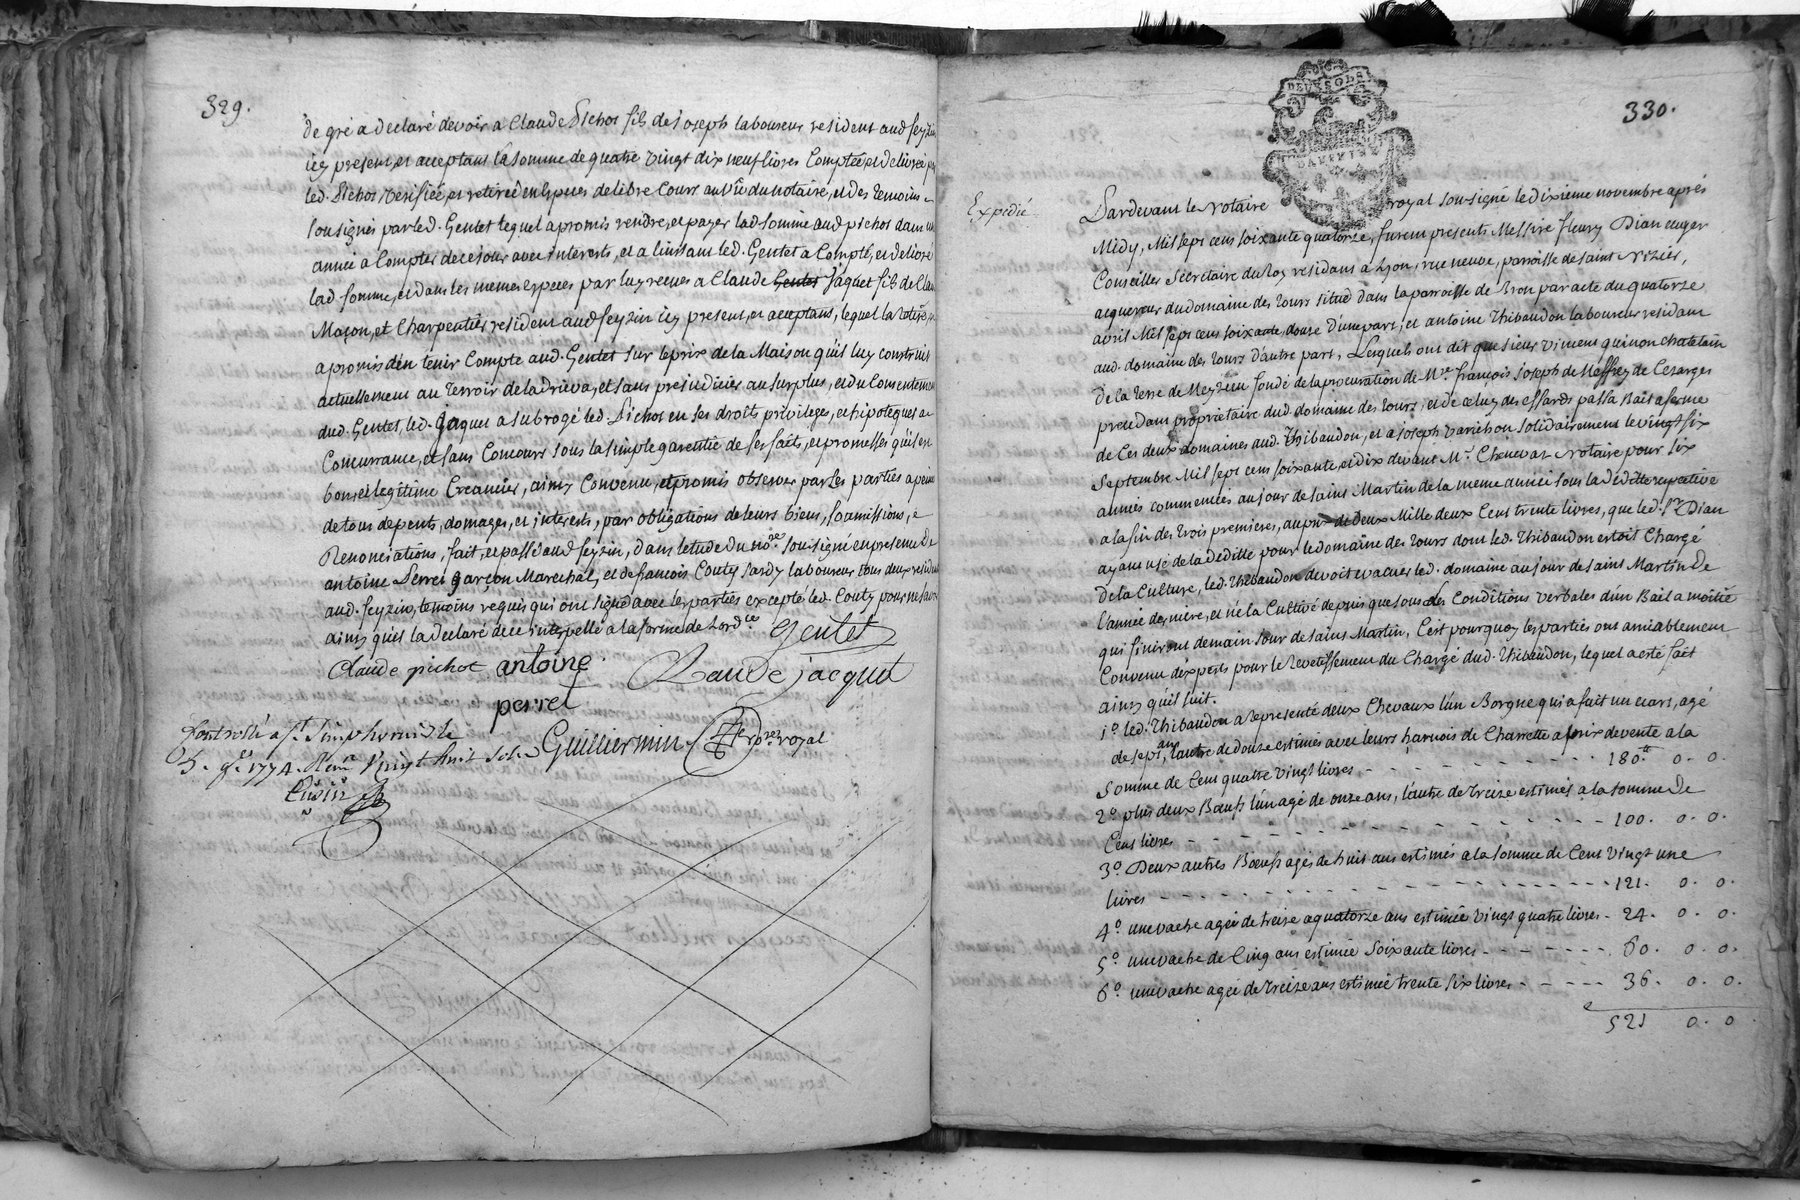 329.
de gré a declaré devoir a Claude Pichot fils de joseph laboureur resident aud feyzin
icy present, et acceptant la somme de quatre vingt dix neuf livres Comptée, et delivrée par
led. Pichot verifiée, et retirée en Especes de libre Cours au vû du notaire, et des temoins
sousignés par led. Gentet lequel a promis rendre, et payer lad. somme aud pichot dans un
année a Compter de ce jour avec interests, et a l'instant led. Gentet a Compté, et delivré
lad somme, et dans les memes especes par luy recues a Claude Gentet Jaquet fils de Claude
Maçon, et Charpentier resident aud feyzin icy present, et acceptant, lequel l'a retiré, et
a promis d'en tenir Compte aud. Gentet sur le prix de la Maison qu'il luy construit
actuellement au Terroir de la drieva, et sans prejudicier au surplus, et du Consentement
dud. Gentet, led. jaquet a subrogé led. Pichot en ses droits, privileges, et hipoteques en
Concurrance, et sans Concours sous la simple garentie de ses faits, et promesses qu'il est
bon, et legitime Creancier, ainsy Convenu, et promis observer par les parties a peine
de tous depents, domages, et interests, par obligations de leurs biens, soumissions, et
Renonciations, fait, et passé aud feyzin, dans l'etude du nore. sousigné en presence de
antoine Perret garçon Marechal, et de francois Couty Jardy laboureur tous deux resident
aud. feyzin, temoins requis qui ont signé avec les parties excepté led. Couty pour ne savoir
ainsy qu'il l'a declaré de ce interpellé a la forme de l'ordce. Gentet
Claude pichot antoine Claude jacquet
perret
Controllé a St. Simphorien le
9bre 1774. Reçu vingt huit sols Guilliermin nore royal
330.
DEUX SOLS
DAUPHINE
Expedié
Pardevant le Notaire royal sousigné le dixieme novembre aprés
Midy, Mil sept cent soixante quatorze, furent presents Messire fleury Dian ecuyer
Conseiller Secretaire du Roy residant a Lyon, rue neuve, parroisse de saint Nizier,
acquereur du domaine des Tours situé dans la parroisse de Bron par acte du quatorze
avril Mil sept cent soixante douze d'une part, et antoine Thibaudon laboureur resident
aud. domaine des Tours d'autre part, Lesquels ont dit que sieur vincent quinon chatelain
de la terre de Meyzieu fondé de la procuration de Mre. françois joseph de Meffrey de Cesarges
precedant proprietaire dud. domaine des Tours, et de celuy des essards passa Bail a ferme
de Ces deux domaines aud. Thibaudon, et a joseph varichon solidairement le vingt six
Septembre Mil sept cent soixante, et dix devant Mr. Chenevaz Notaire pour six
années commencées au jour de saint Martin de la meme année sous la dedite respective
a la fin des Trois premieres, au prix de deux Mille deux Cent trente livres, que led. Sr. Dian
ayant usé de la dedite pour le domaine des Tours dont led. Thibaudon estoit Chargé
de la Culture, led. Thibaudon devoit evacuer led. domaine au jour de saint Martin de
l'année derniere, et ne l'a Cultivé depuis que sous des Conditions verbales d'un Bail a moitié
qui finiront demain jour de saint Martin, C'est pourquoy les parties ont amiablement
Convenu d'experts pour le Revetissement du Chargé dud. Thibaudon, lequel a esté fait
ainsy qu'il suit.
1o. led. Thibaudon a Representé deux Chevaux l'un Borgne qui a fait un ecart, agé
de sept ans, l'autre de douze estimés avec leurs harnois de Charrette a souir de vente a la
Somme de Cent quatre vingt livres 180.tt 0. 0.
2o. plus deux Bœufs l'un agé de onze ans, l'autre de treize estimés a la somme de
Cent livres 100. 0. 0.
3o. Deux autres Bœufs agés de huit ans estimés a la somme de Cent vingt une
livres 121. 0. 0.
4o. une vache agée de treize a quatorze ans estimée vingt quatre livres 24. 0. 0.
5o. une vache de Cinq ans estimée soixante livres 60. 0. 0.
6o. une vache agée de treize ans estimée trente six livres 36. 0. 0.
521 0. 0